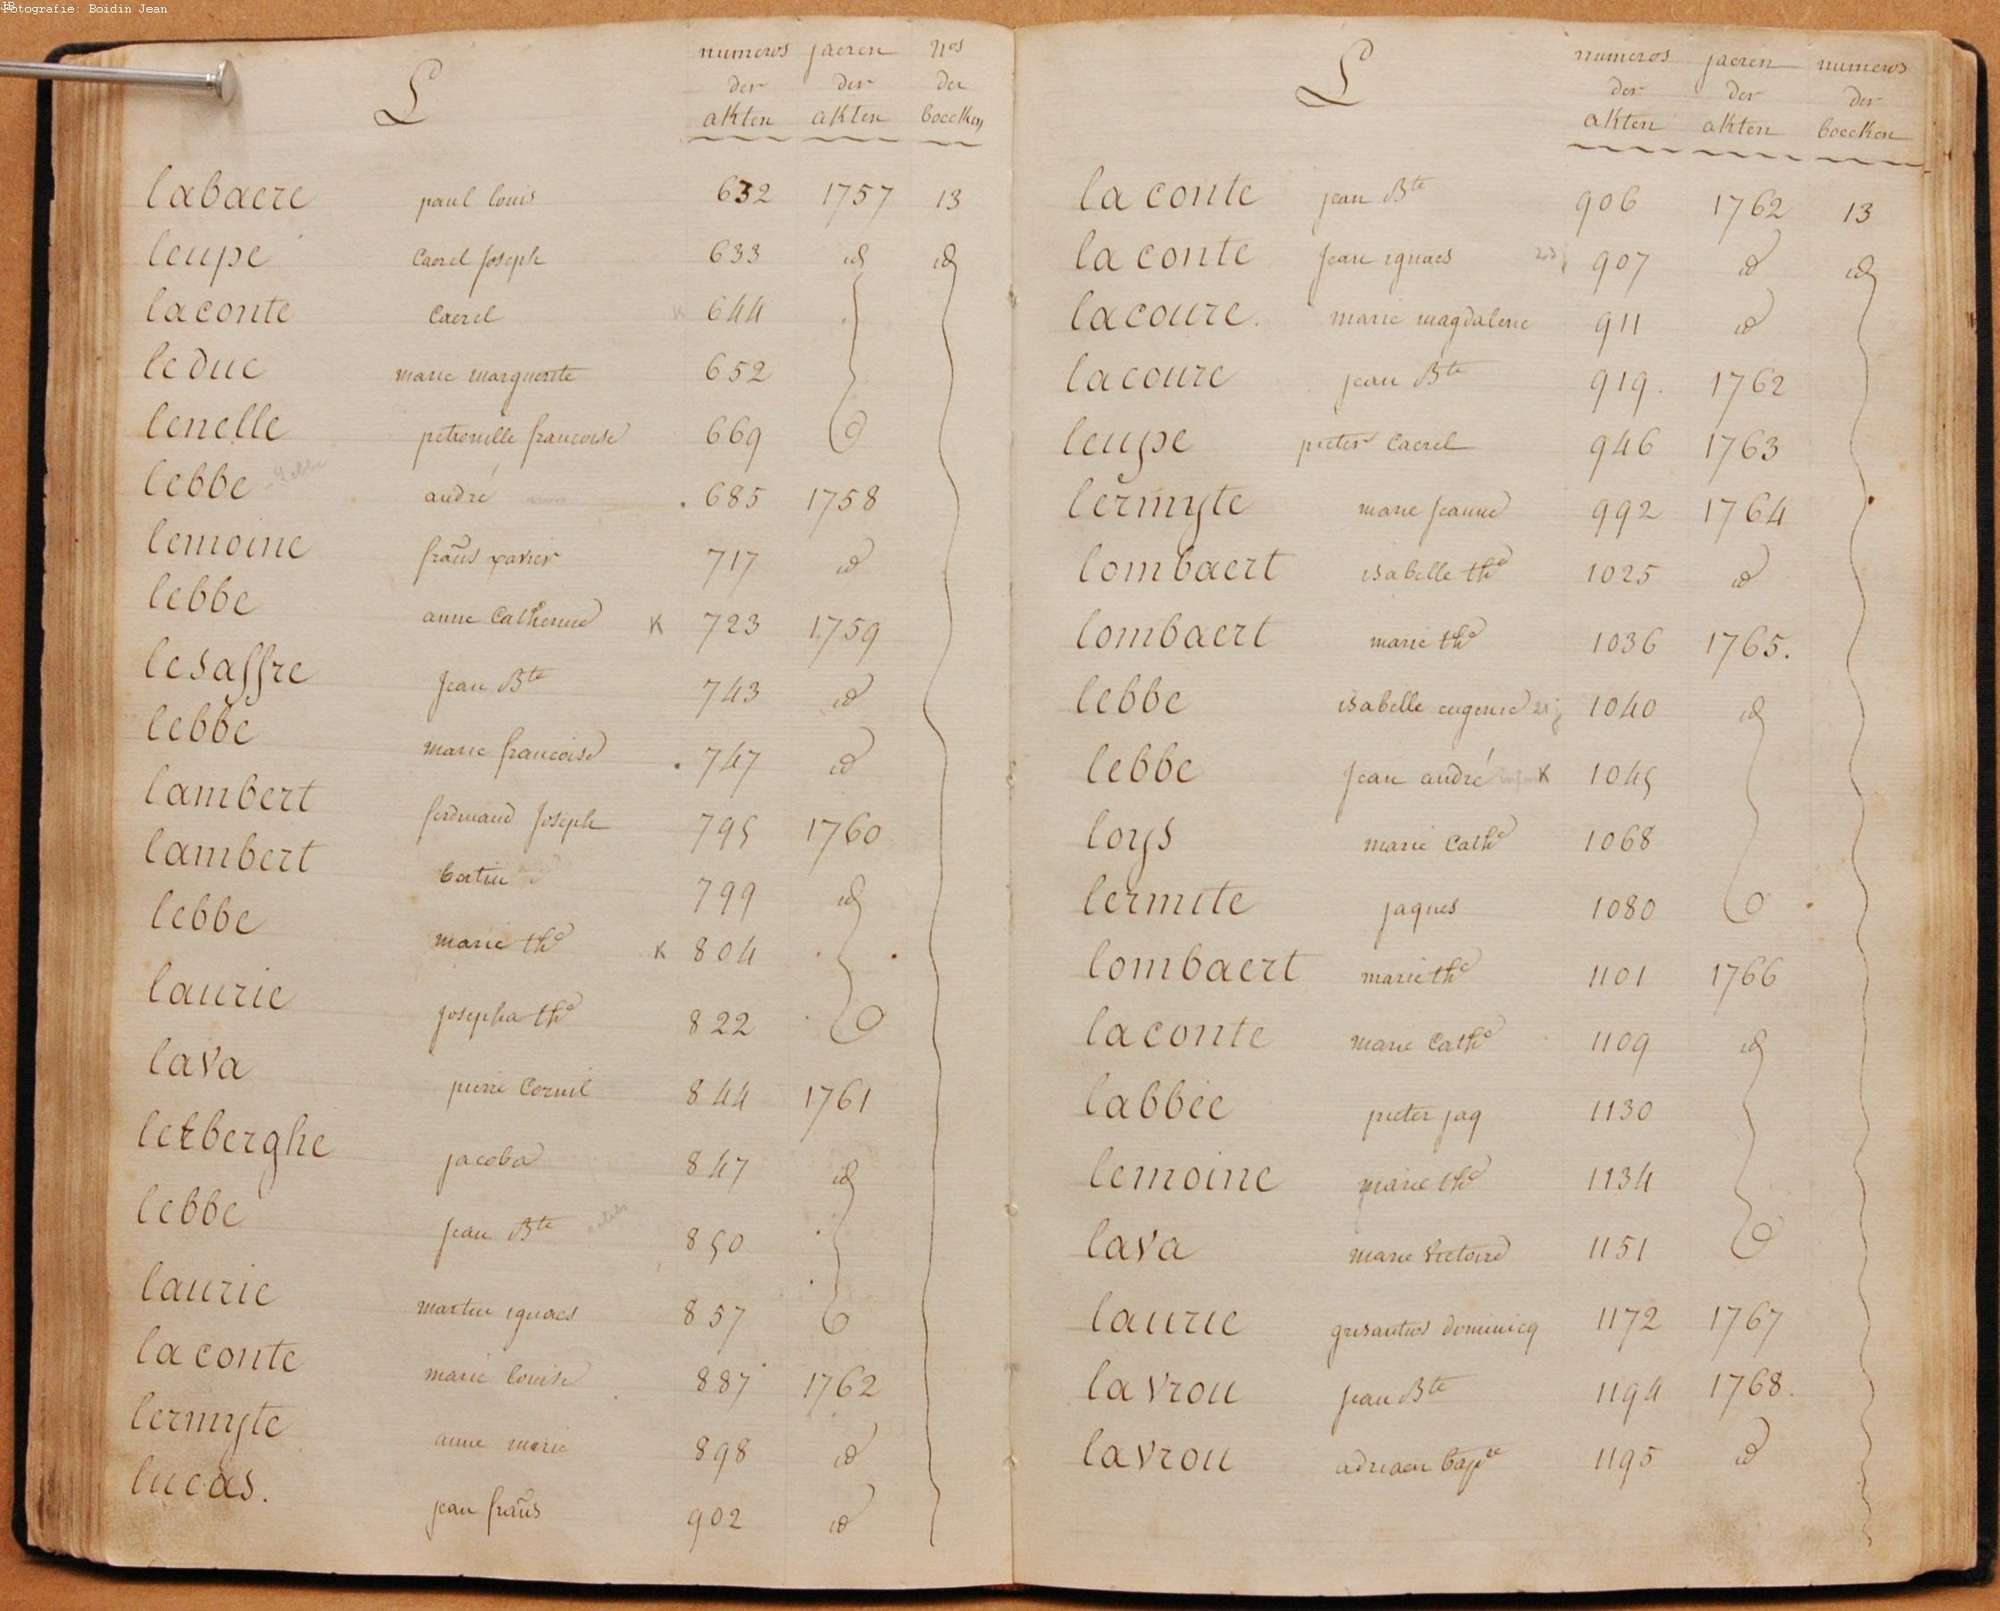 Fotografie: Boidin Jean
L numeros jaeren nos
der der der
akten akten boecken
labaere paul louis 632 1757 13
leupe Caerel Joseph 633 id id
laconte Caerel 644
leduc marie marguerite 652
lenelle petronille francoise 669
lebbe andré 685 1758
lemoine frans xavier 717 id
lebbe anne Catherine K 723 1759
lesaffre Jean Bte 743 id
lebbe marie francoise 747 id
lambert ferdinand Joseph 795 1760
lambert 799 id
lebbe marie the K 804
laurie Josepha the 822
lava pierre Cornil 844 1761
letberghe jacoba 847 id
lebbe Jean Bte 850
laurie martin ignaes 857
laconte marie louise 887 1762
lermyte anne marie 898 id
lucas. jean frans 902 id
L numeros jaeren numeros
der der der
akten akten boecken
la conte jean Bte 906 1762 13
la conte Jean ignaes 23 907 id id
lacoure. marie magdalene 911 id
lacoure jean Bte 919. 1762
leupe pieter Caerel 946 1763
lermyte marie Jeanne 992 1764
lombaert isabelle the 1025 id
lombaert marie the 1036 1765.
lebbe isabelle eugenie 1040 id
lebbe Jean andré K 1045
loys marie Cathe 1068
lermite jaques 1080
lombaert marie the 1101 1766
laconte marie Cathe 1109 id
labbée pieter jaq 1130
lemoine marie the 1134
lava marie Victoire 1151
laurie grisantus dominicq 1172 1767
lavrou jean Bte 1194 1768.
lavrou adriaen bapte 1195 id